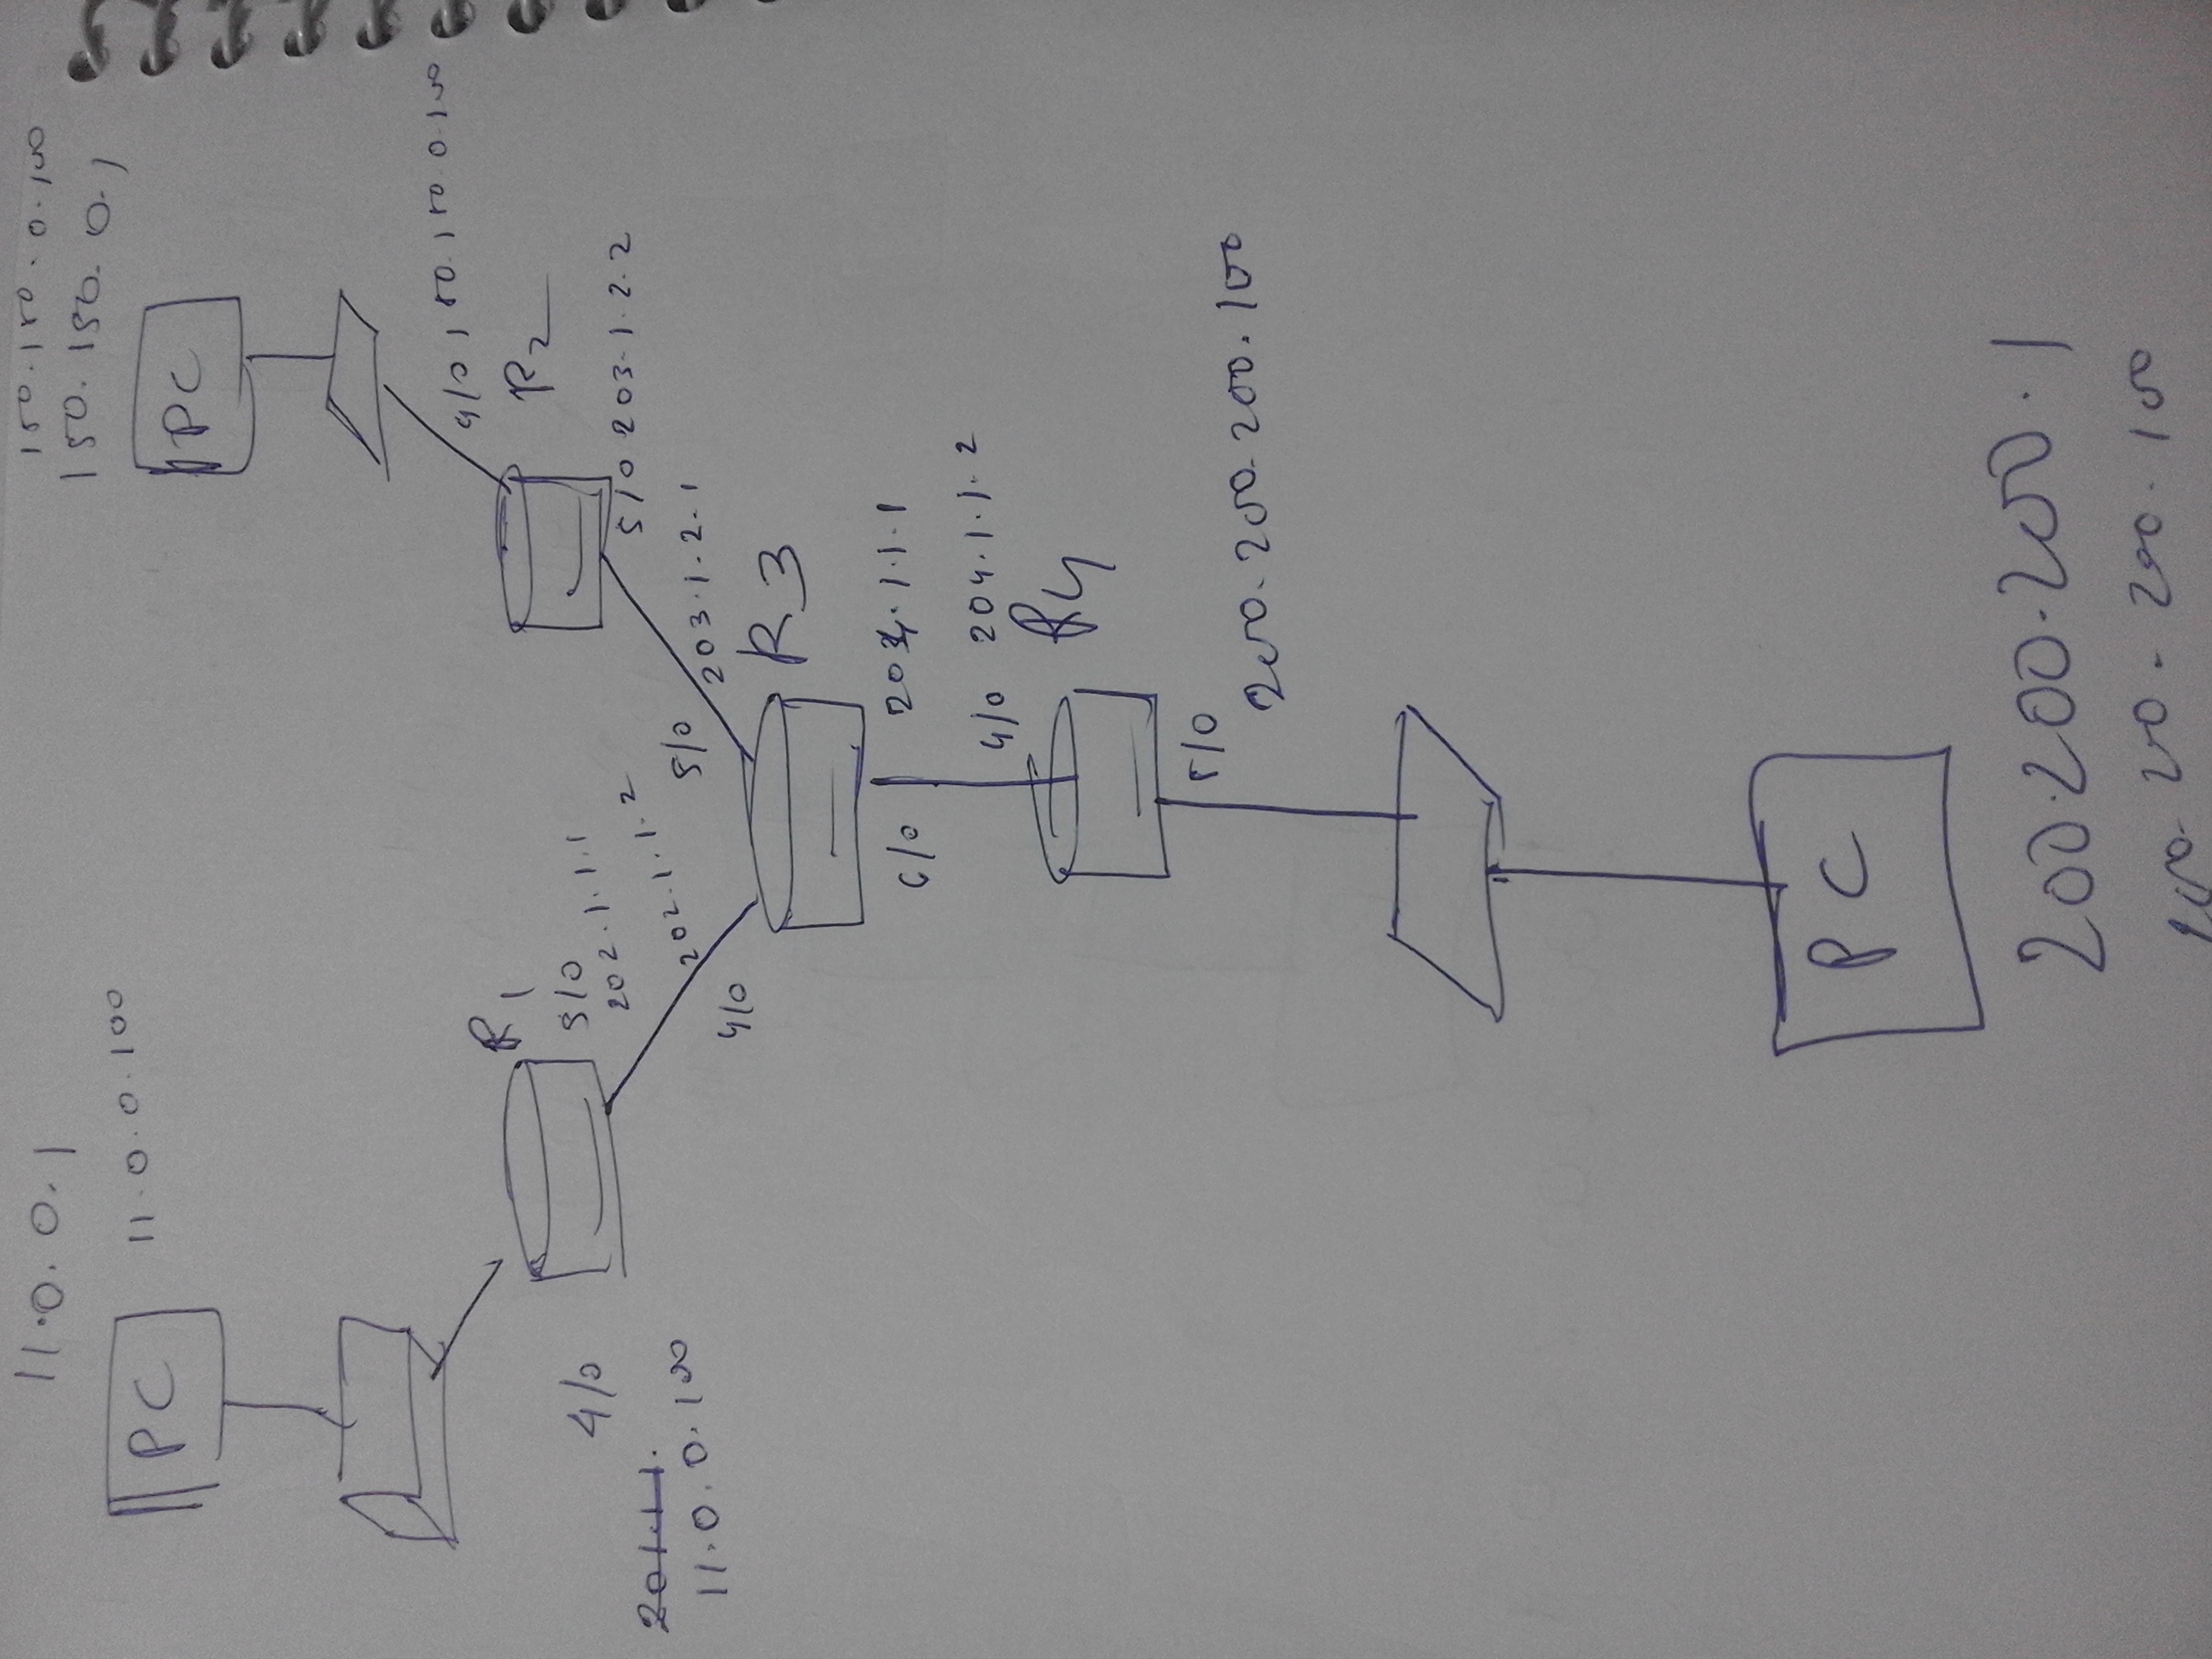 11.0.0.1
150.150.0.100
150.150.0.1
PC
11.0.0.100
PC
4/0 150.150.0.100
R1
R2
4/0
5/0
202.1.1.1
5/0 203.1.2.2
201.1.1.
11.0.0.100
202.1.1.2
5/0
203.1.2.1
4/0
R3
6/0
204.1.1.1
4/0 204.1.1.2
R4
5/0
200.200.200.100
PC
200.200.200.1
200.200.200.100